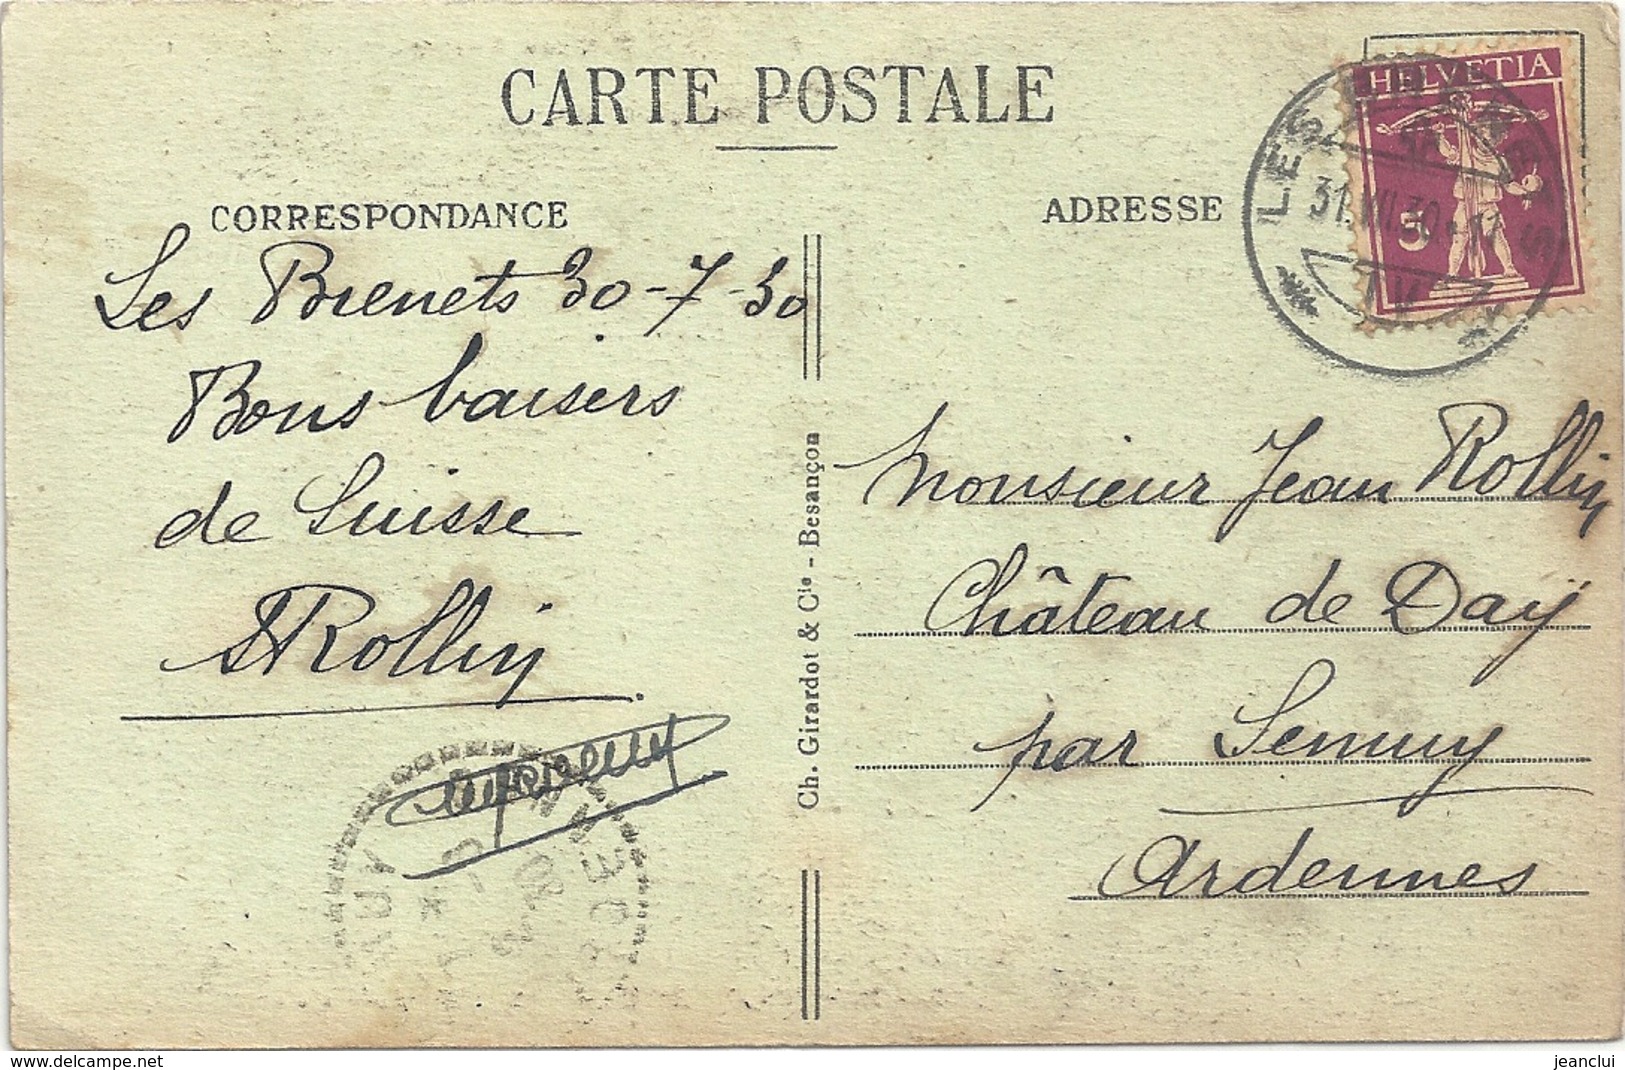 CARTE POSTALE
CORRESPONDANCE
ADRESSE
HELVETIA
5
LES BRENETS
31.VII.30.-11
Les Brenets 30-7-30
Bons baisers
de Suisse
Rollin
Monsieur Jean Rollin
Château de Day
par Semuy
Ardennes
Ch. Girardot & Cie - Besançon
delcampe.net
jeanclui